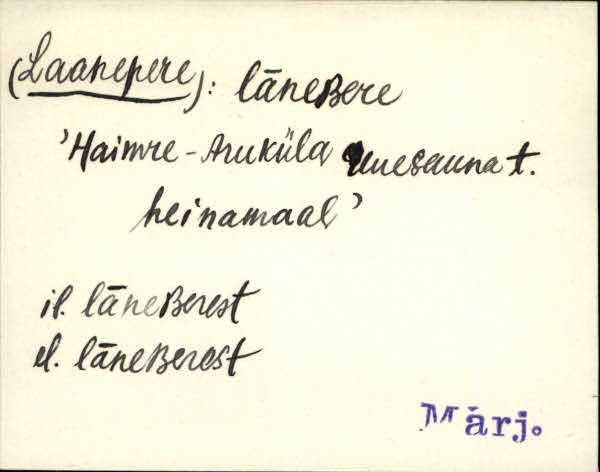 (Laanepere): lāneʙere
'Haimre-Aruküla Uuesauna t.
heinamaal'
il. lāneʙerest
el. lāneʙerest
Märj.